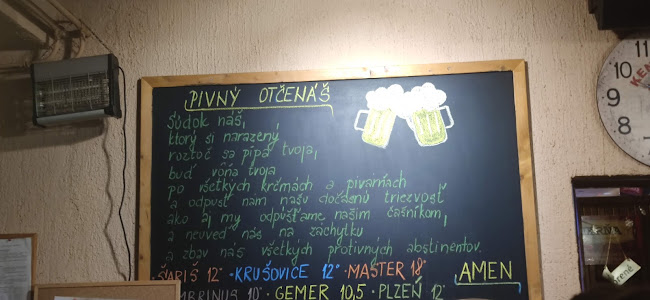 PIVNÝ OTČENÁŠ
Súdok náš,
ktorý si narazený,
roztoč sa pípa tvoja,
buď vôňa tvoja
po všetkých krčmách a pivárňach
a odpusť nám našu dočasnú triezvosť
ako aj my odpúšťame našim čašníkom,
a neuveď nás na záchytku
a zbav nás všetkých protivných abstinentov.
AMEN
ŠARIŠ 12° · KRUŠOVICE 12° · MASTER 18°
MBRINUS 10° · GEMER 10,5 · PLZEŇ 12°
10
9
8